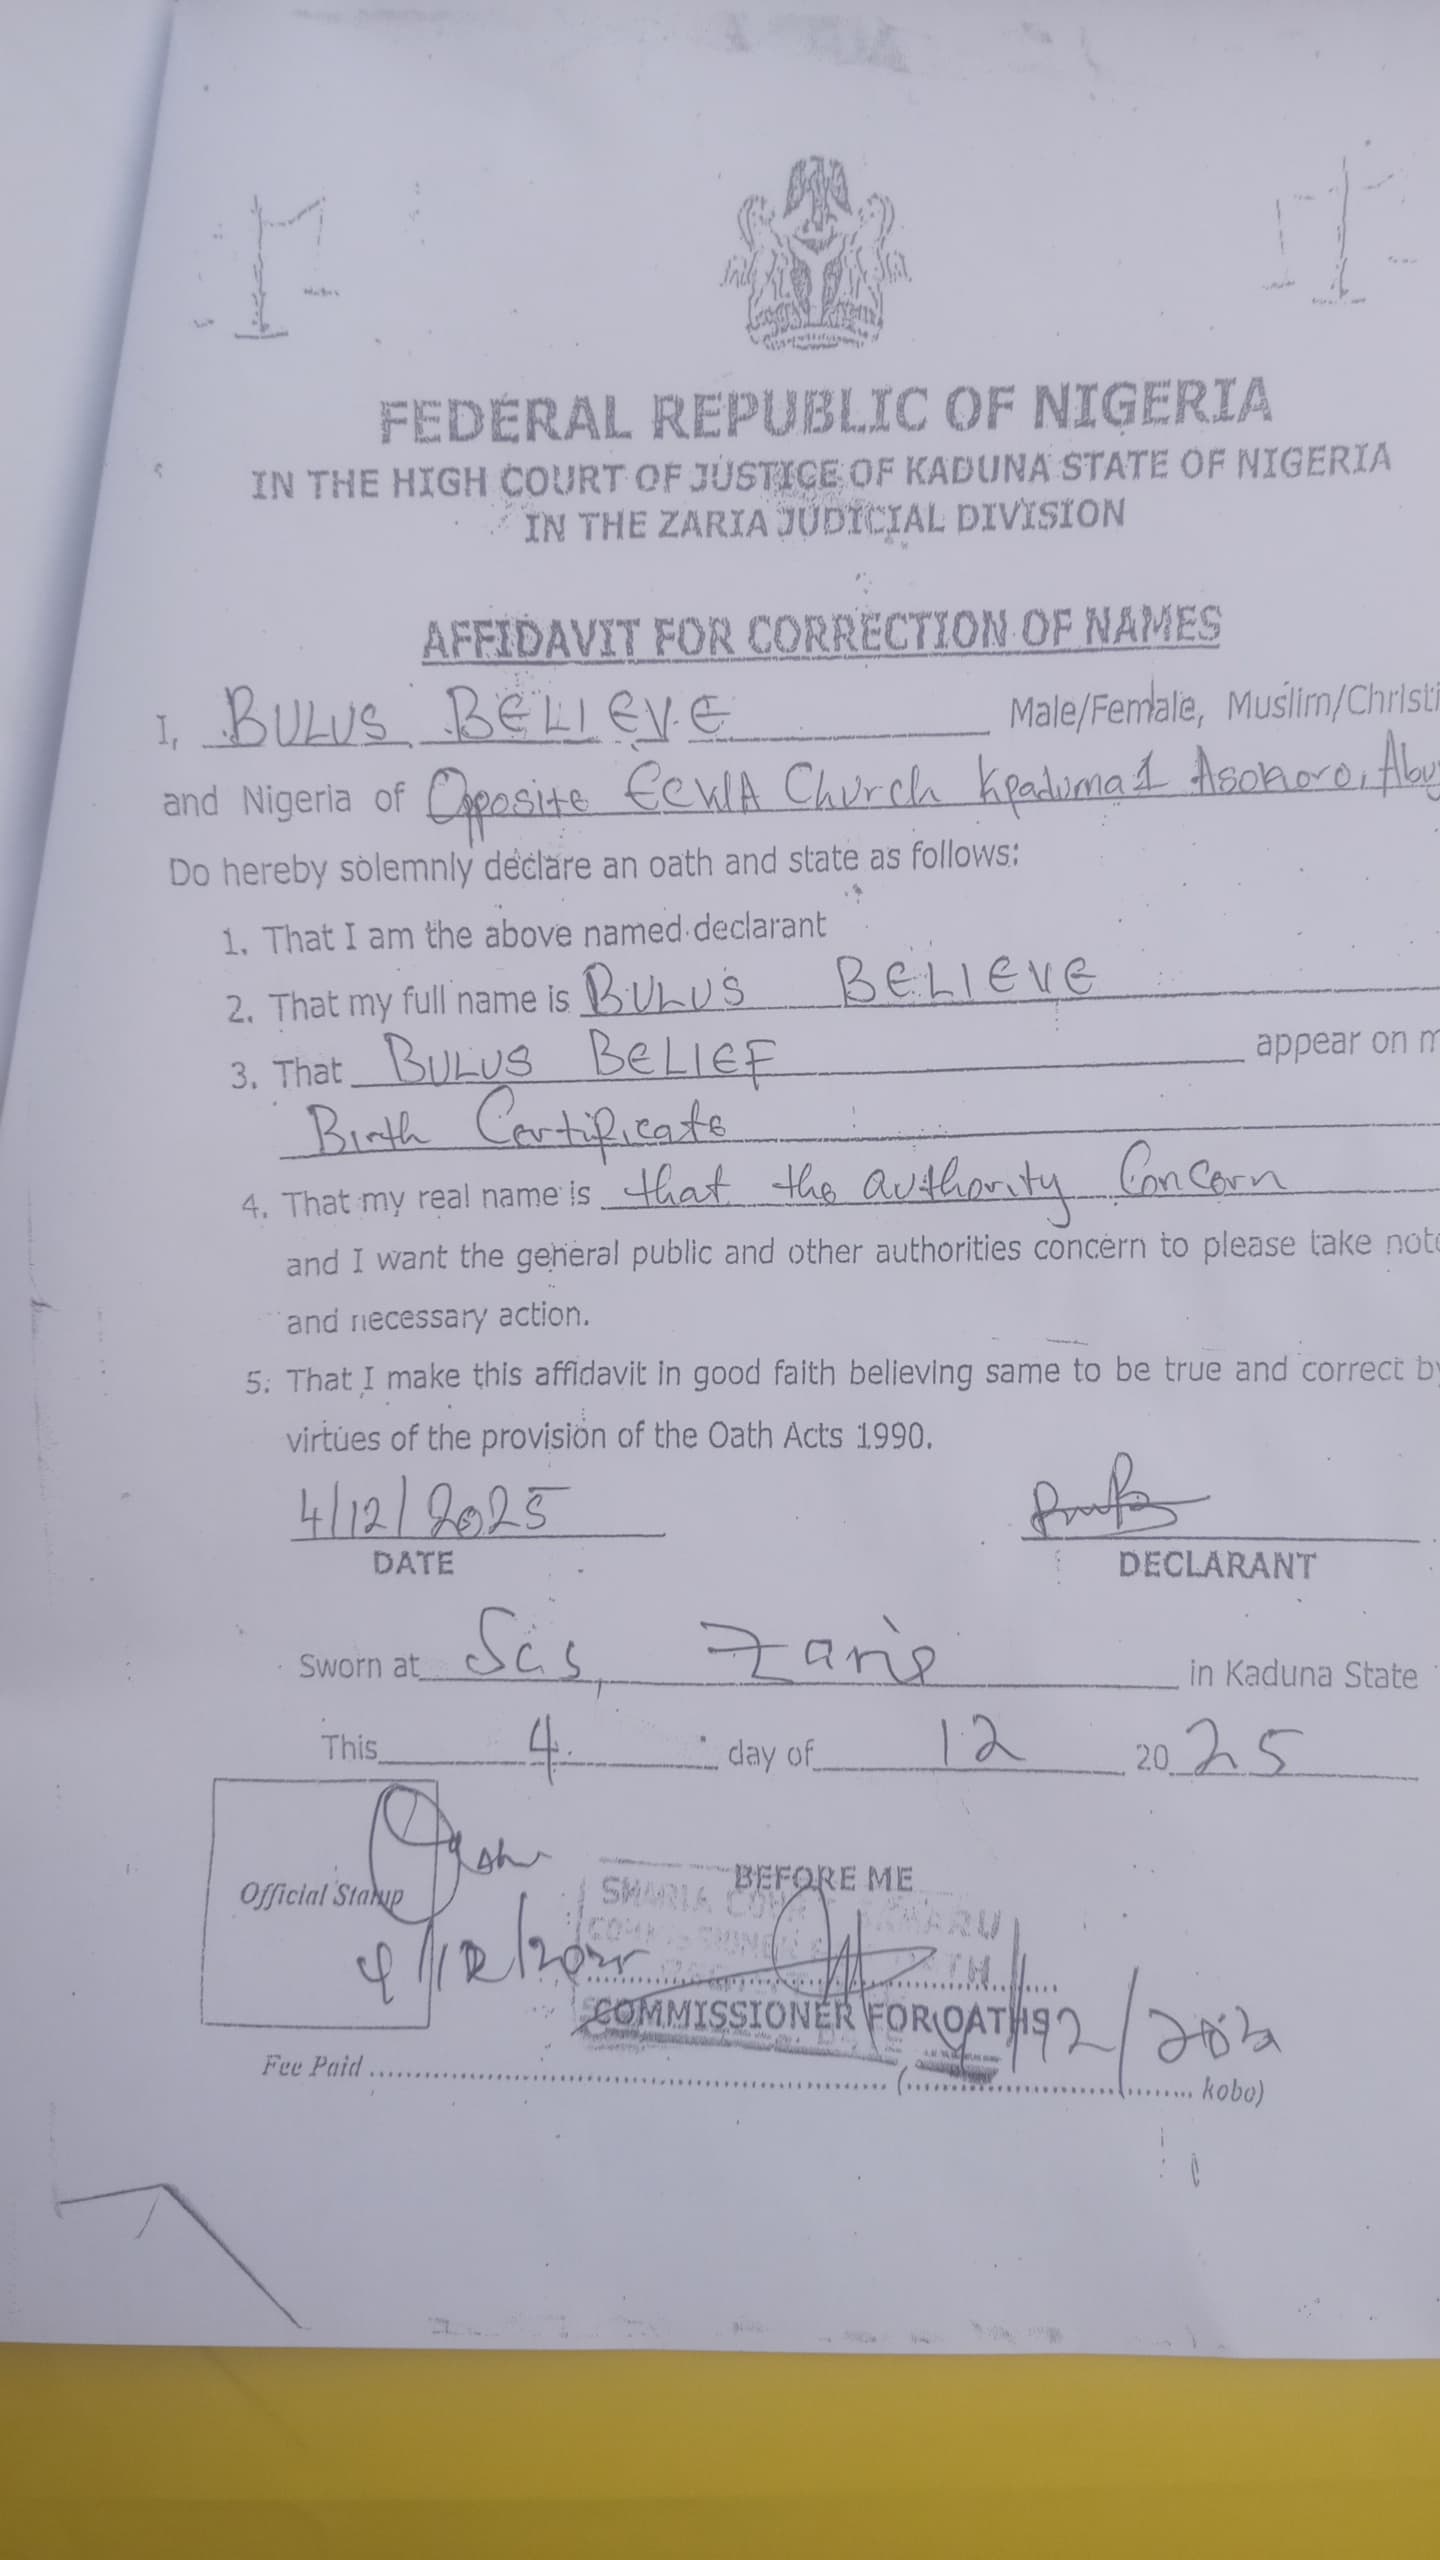 FEDERAL REPUBLIC OF NIGERIA
IN THE HIGH COURT OF JUSTICE OF KADUNA STATE OF NIGERIA
IN THE ZARIA JUDICIAL DIVISION
AFFIDAVIT FOR CORRECTION OF NAMES
I, BULUS BELIEVE Male/Female, Muslim/Christi
and Nigeria of Opposite ECWA Church Kpaduma 1 Asokoro, Abuj
Do hereby solemnly declare an oath and state as follows:
1. That I am the above named declarant
2. That my full name is BULUS BELIEVE
3. That BULUS BELIEF appear on m
Birth Certificate
4. That my real name is that the authority Concern
and I want the general public and other authorities concern to please take note
and necessary action.
5. That I make this affidavit in good faith believing same to be true and correct by
virtues of the provision of the Oath Acts 1990.
4/12/2025
DATE DECLARANT
Sworn at Zaria in Kaduna State
This 4 day of 12 2025
Official Stamp
BEFORE ME
4/12/2025
COMMISSIONER FOR OATHS
Fee Paid (kobo)